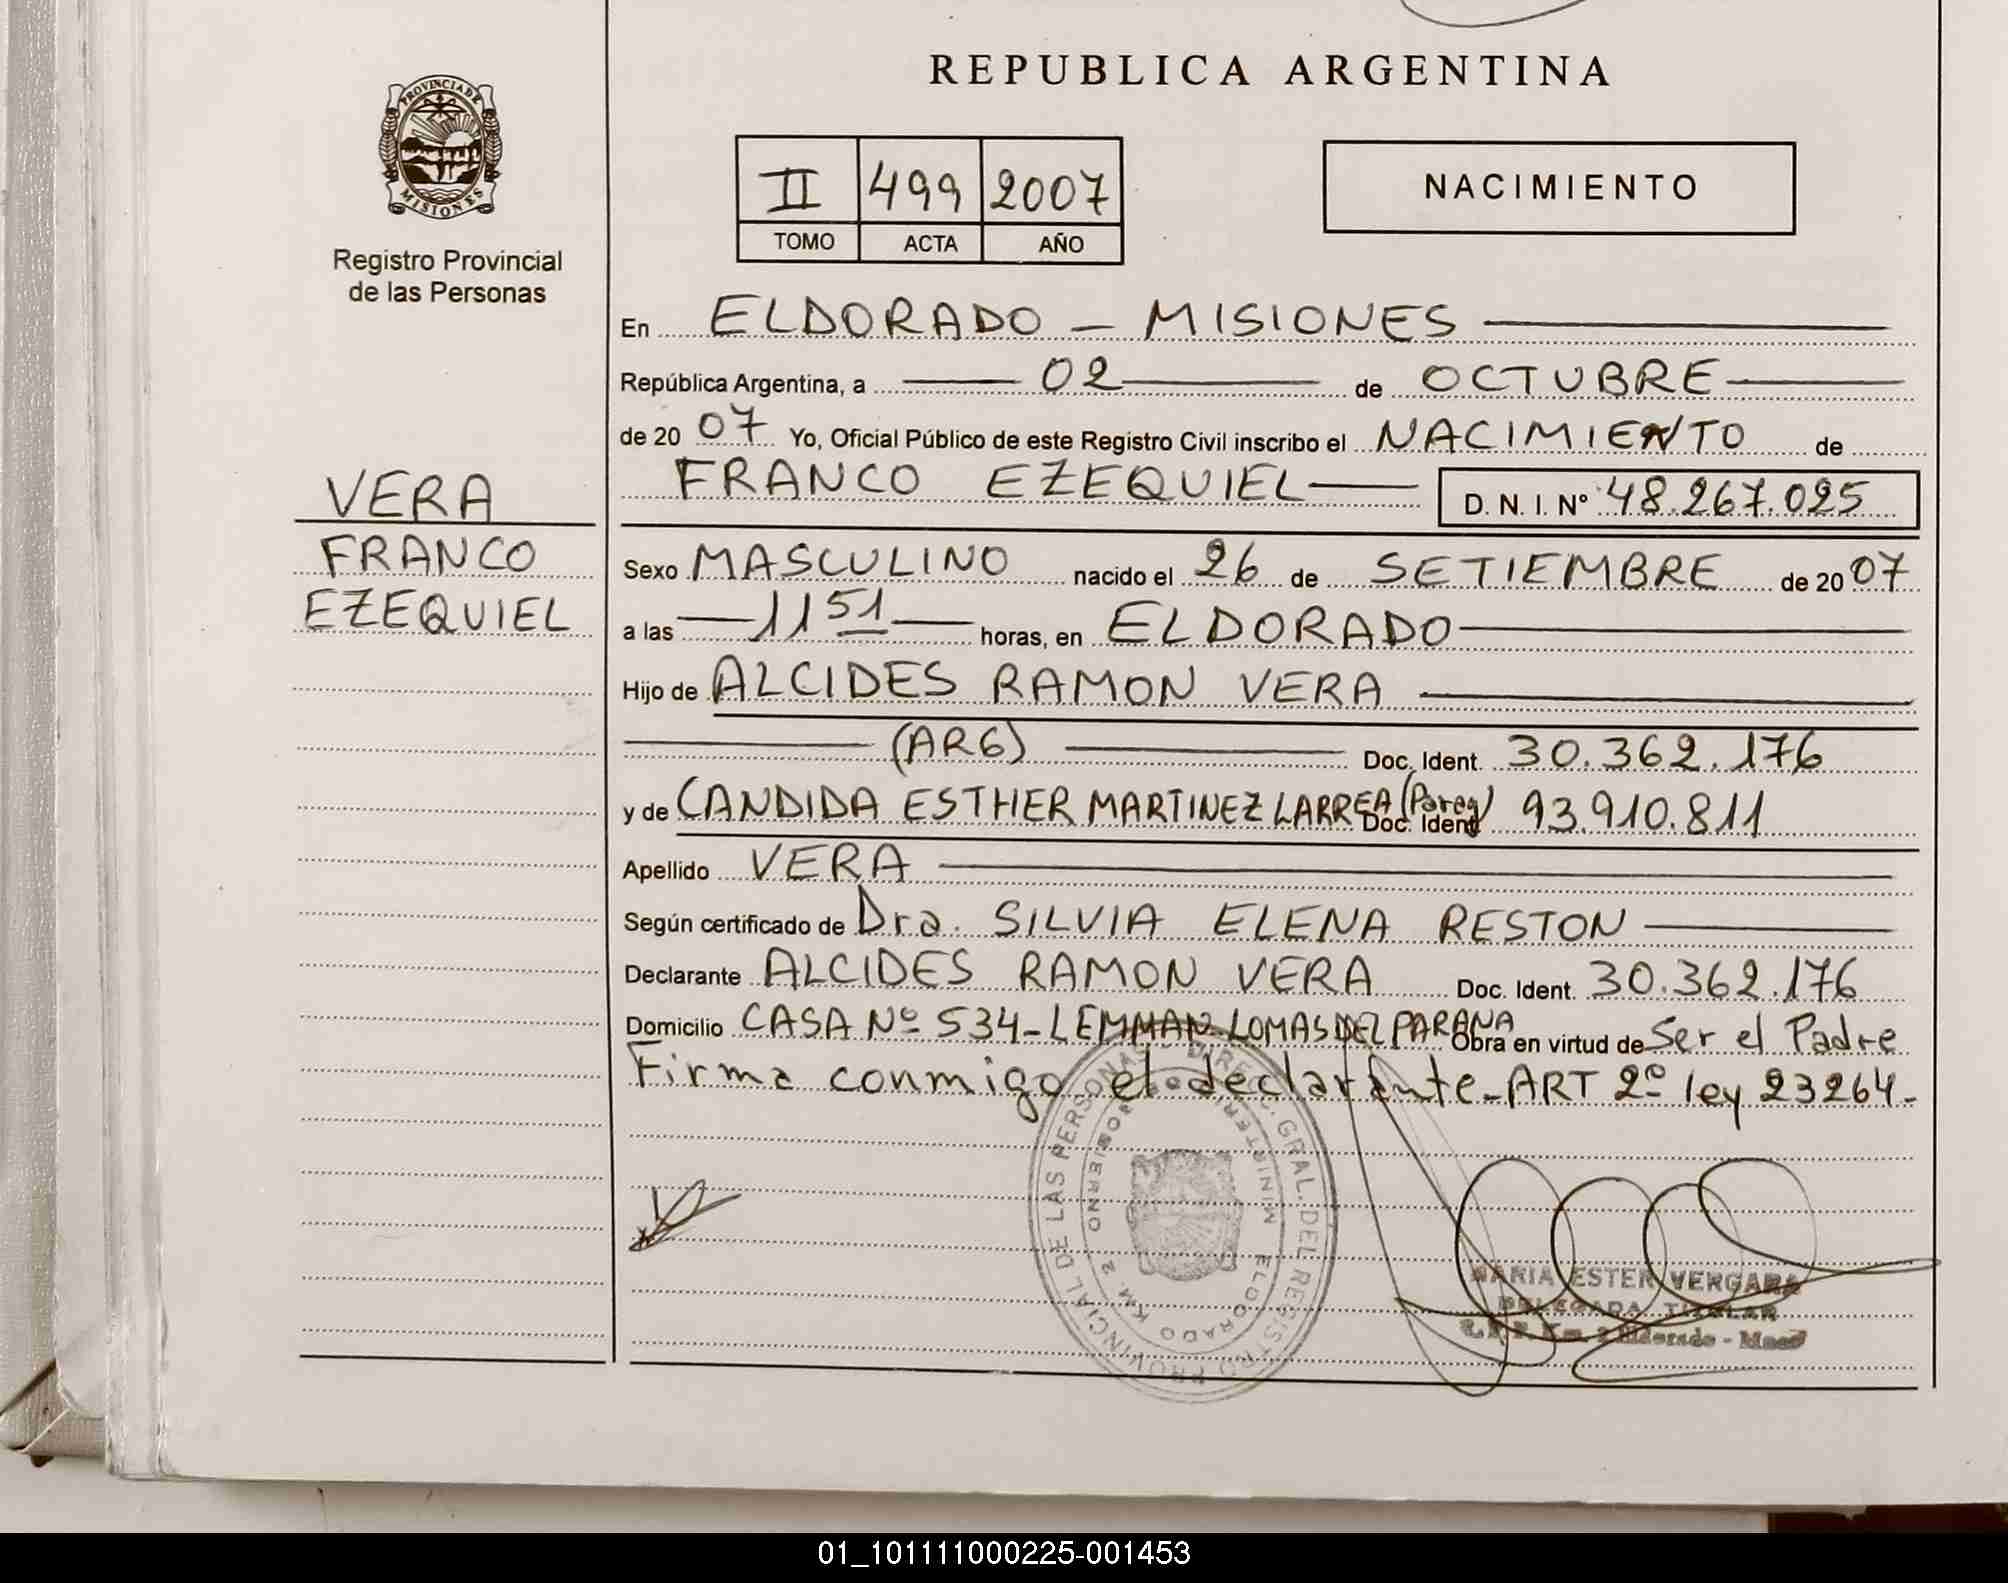 REPUBLICA ARGENTINA
PROVINCIA DE MISIONES
Registro Provincial
de las Personas
II 499 2007
TOMO ACTA AÑO
NACIMIENTO
En ELDORADO - MISIONES
República Argentina, a 02 de OCTUBRE
de 20 07 Yo, Oficial Público de este Registro Civil inscribo el NACIMIENTO de
FRANCO EZEQUIEL D. N. I. Nº 48.267.025
VERA
FRANCO
EZEQUIEL
Sexo MASCULINO nacido el 26 de SETIEMBRE de 20 07
a las 11 51 horas, en ELDORADO
Hijo de ALCIDES RAMON VERA
(ARG) Doc. Ident. 30.362.176
y de CANDIDA ESTHER MARTINEZ LARREA (Parag) Doc. Ident 93.910.811
Apellido VERA
Según certificado de Dra. SILVIA ELENA RESTON
Declarante ALCIDES RAMON VERA Doc. Ident. 30.362.176
Domicilio CASA Nº 534-LEMMAN-LOMAS DEL PARANA Obra en virtud de Ser el Padre
Firma conmigo el declarante-ART 2º ley 23264-
DIREC. GRAL. DEL REGISTRO PROVINCIAL DE LAS PERSONAS
ELDORADO KM. 2
MARIA ESTER VERGARA
DELEGADA TITULAR
R. P. P. Km. 2 Eldorado - Mnes
01_101111000225-001453